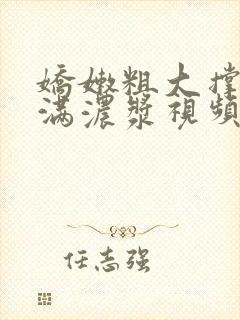 嬌嫩粗大撐
滿濃漿視頻
任志強